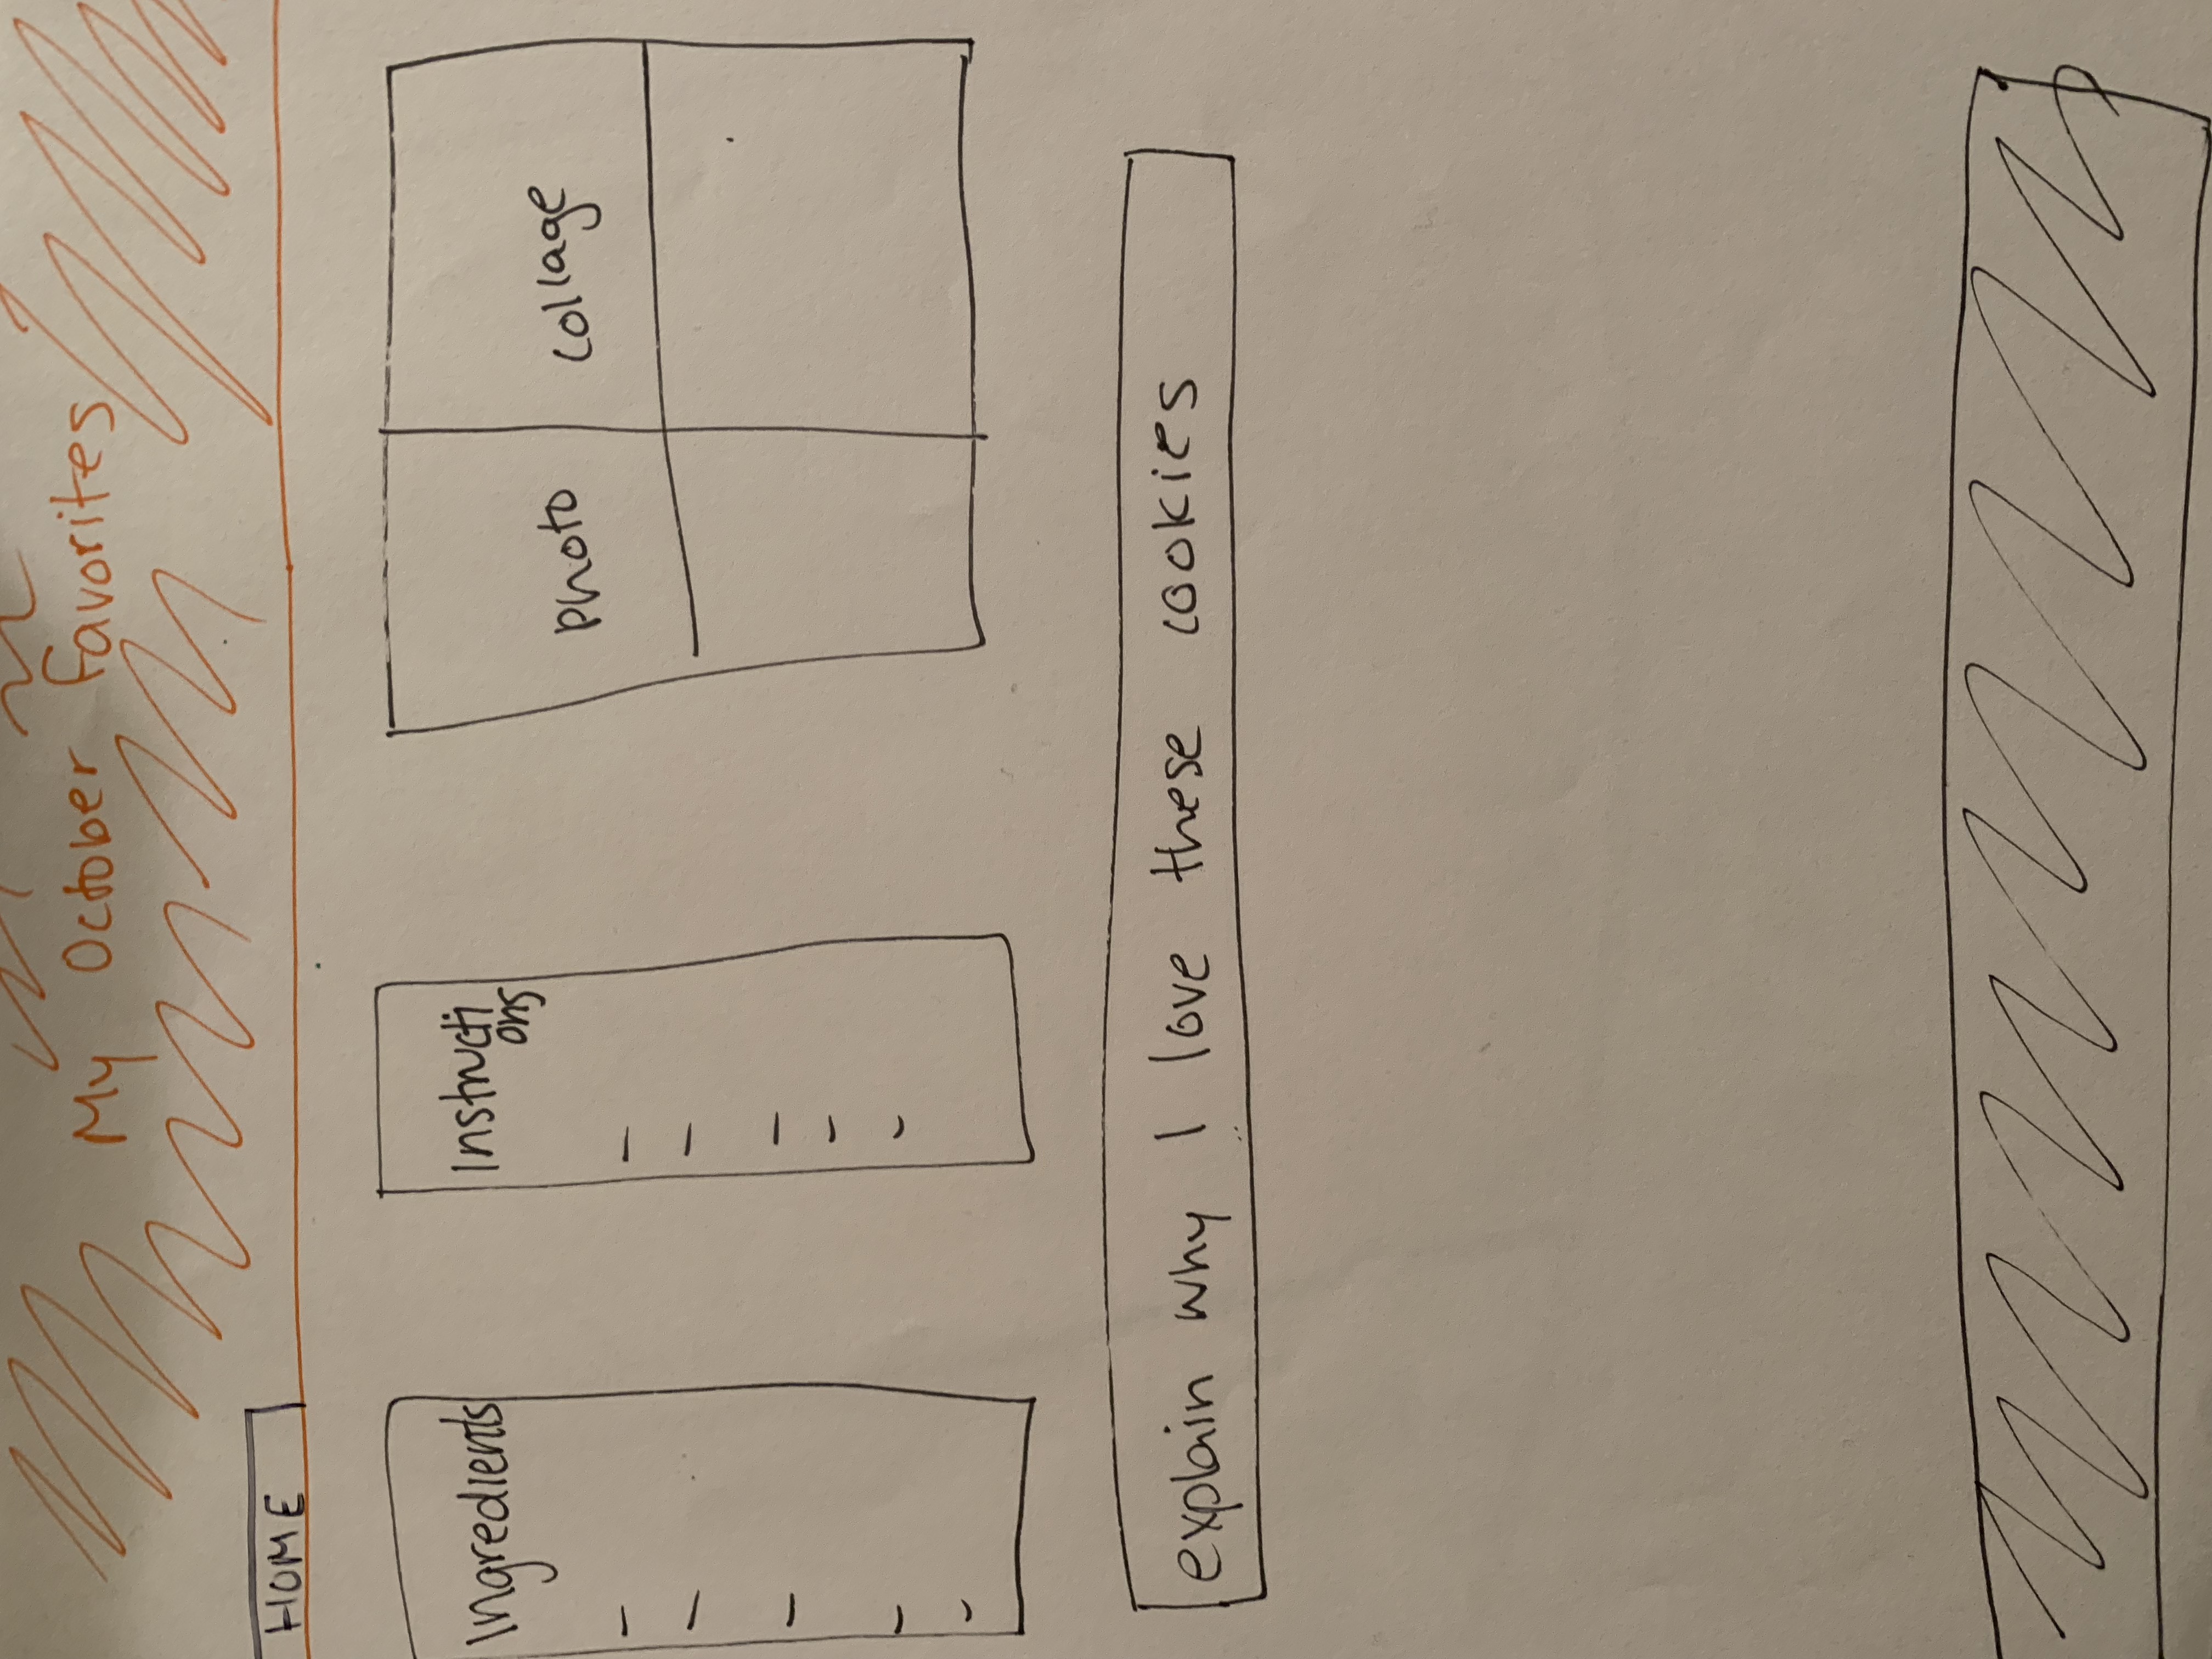 My October Favorites
HOME
Ingredients
Instructi
ons
Photo collage
explain why I love these cookies